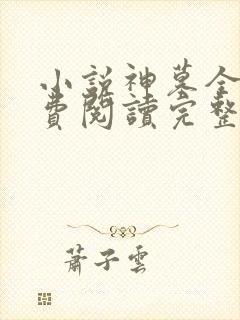 小說神墓全
費閱讀完整
蕭子雲